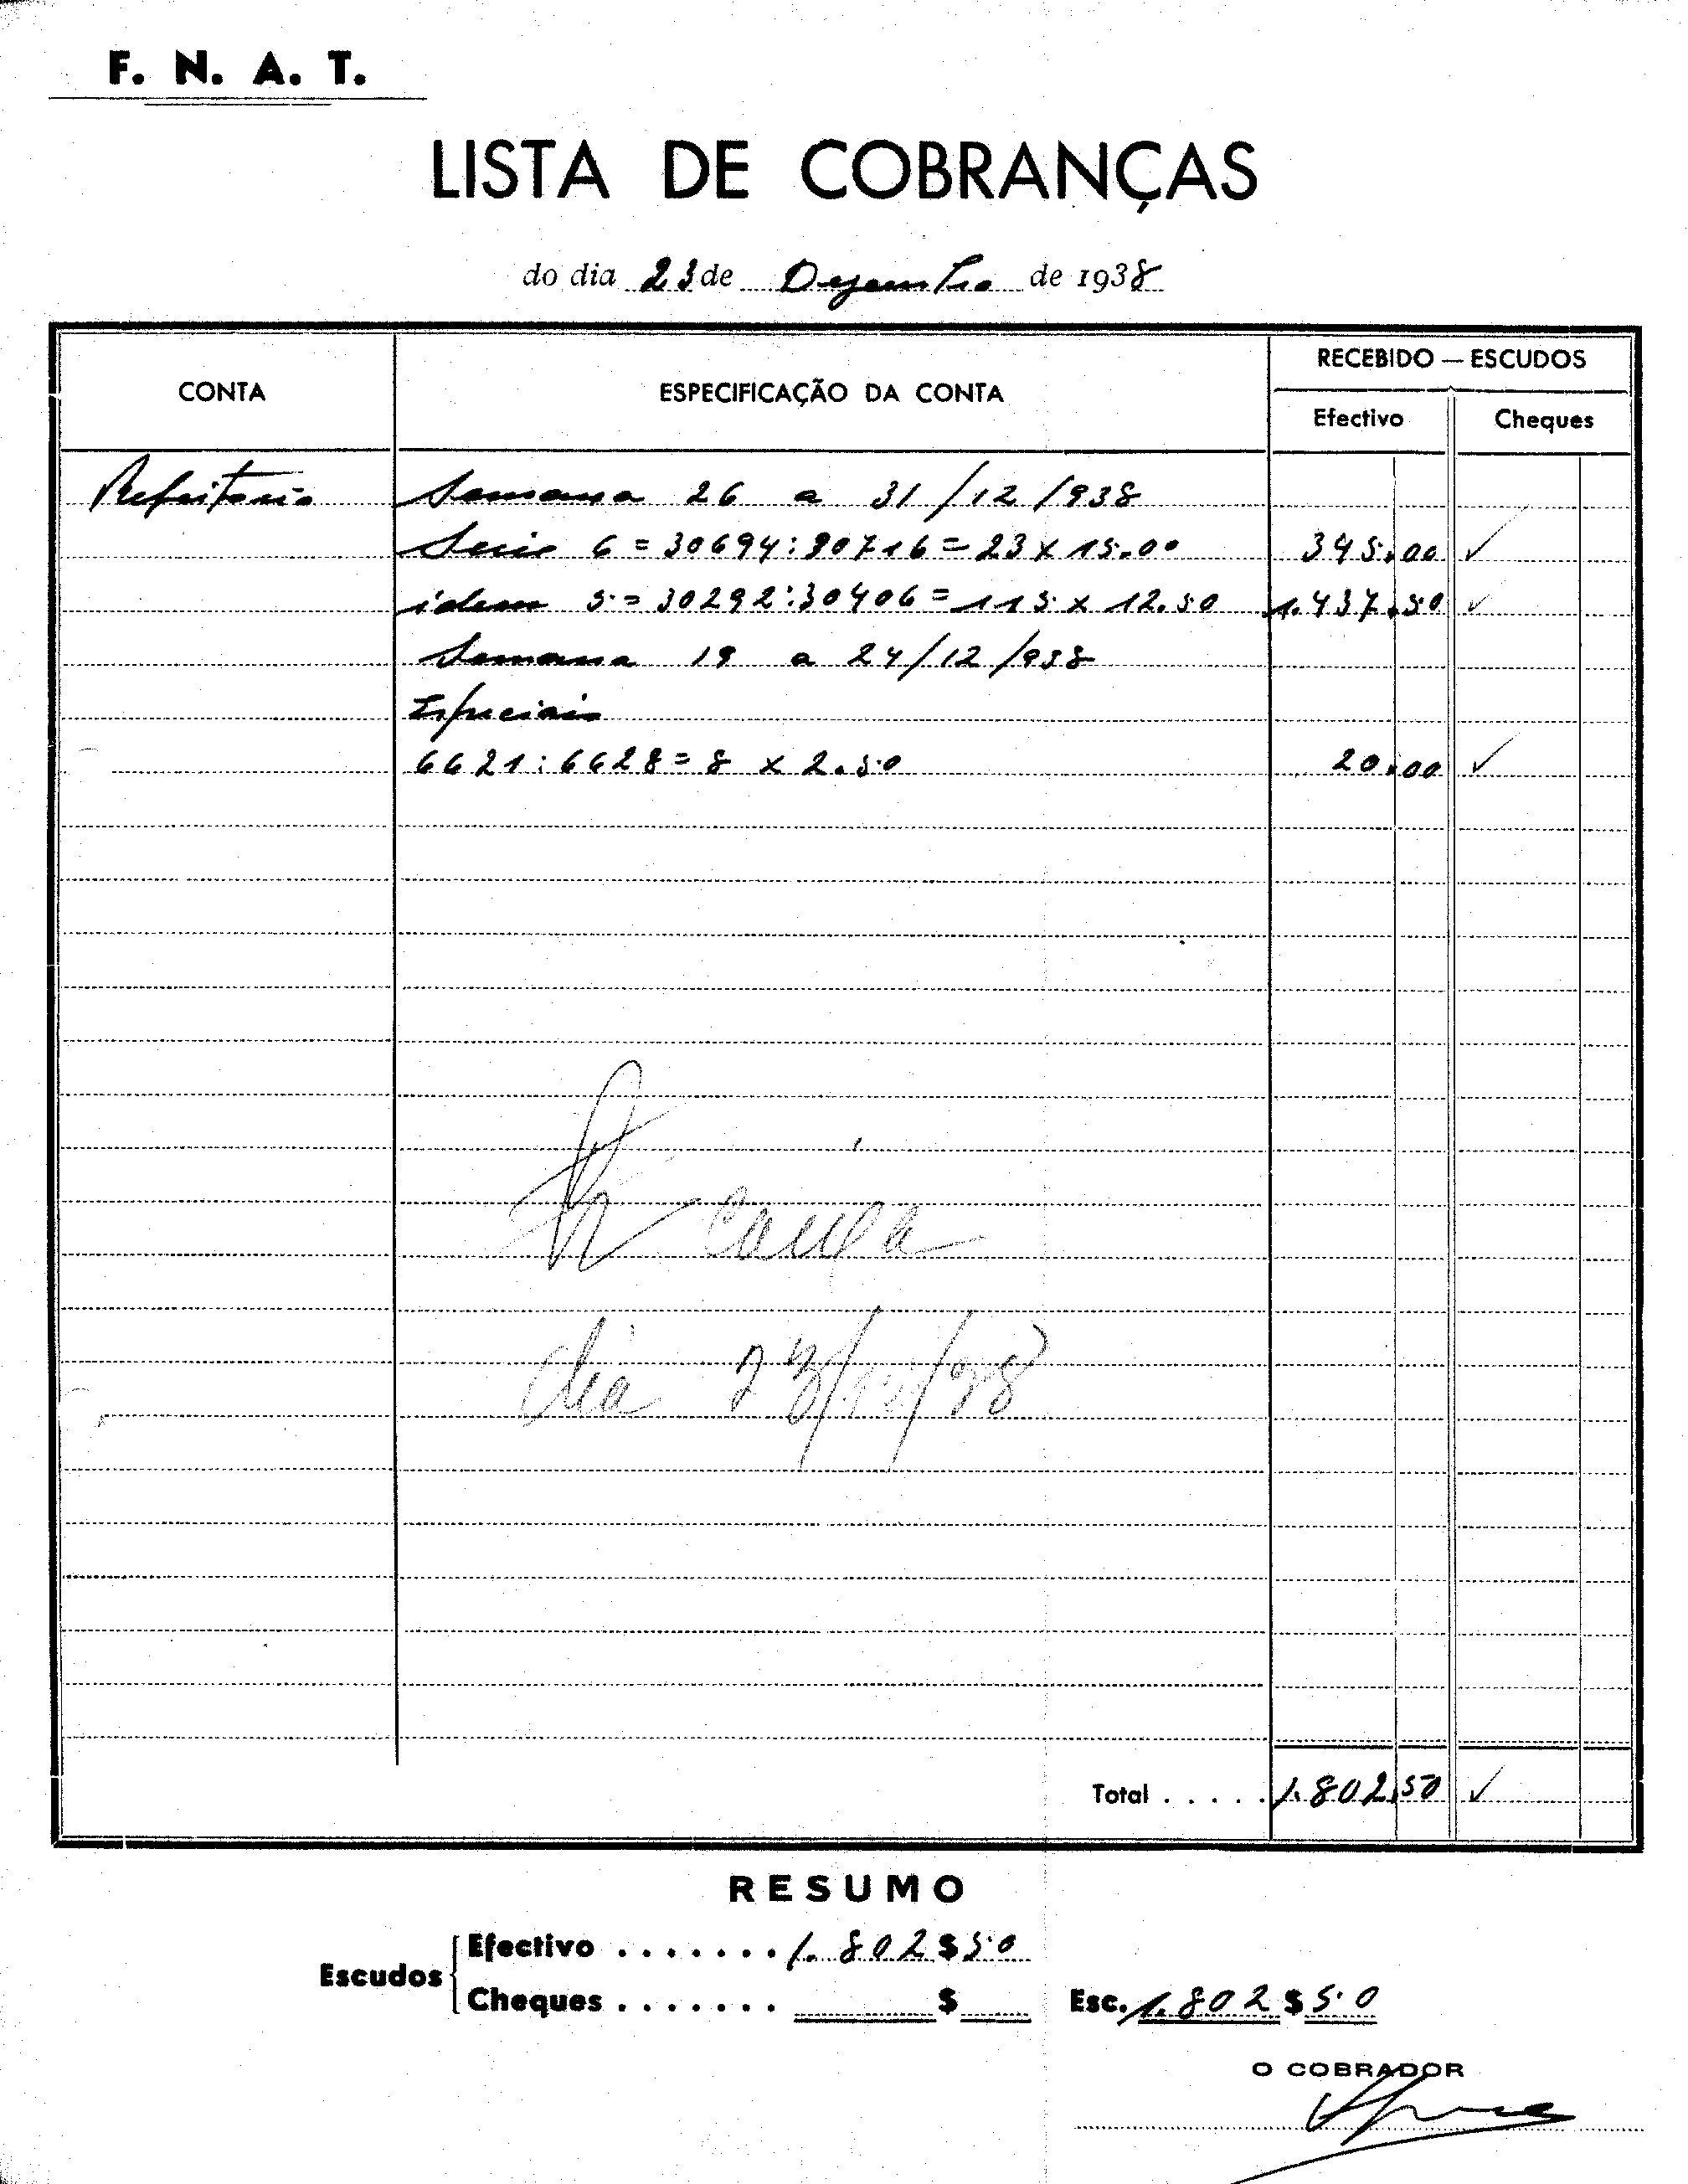 F. N. A. T.
LISTA DE COBRANÇAS
do dia 23 de Dezembro de 1938
CONTA ESPECIFICAÇÃO DA CONTA RECEBIDO — ESCUDOS
Efectivo Cheques
Refeitorio Semana 26 a 31/12/938
Serie 6 = 30694:30716 = 23 x 15.00 345.00 ✓
idem 5 = 30292:30406 = 115 x 12.50 1.437.50 ✓
Semana 19 a 24/12/938
Especiais
6621:6628 = 8 x 2.50 20.00 ✓
caixa
dia 23/12/38
Total ..... 1.802.50 ✓
RESUMO
Escudos
Efectivo ....... 1.802$50
Cheques ....... $ Esc. 1.802$50
O COBRADOR